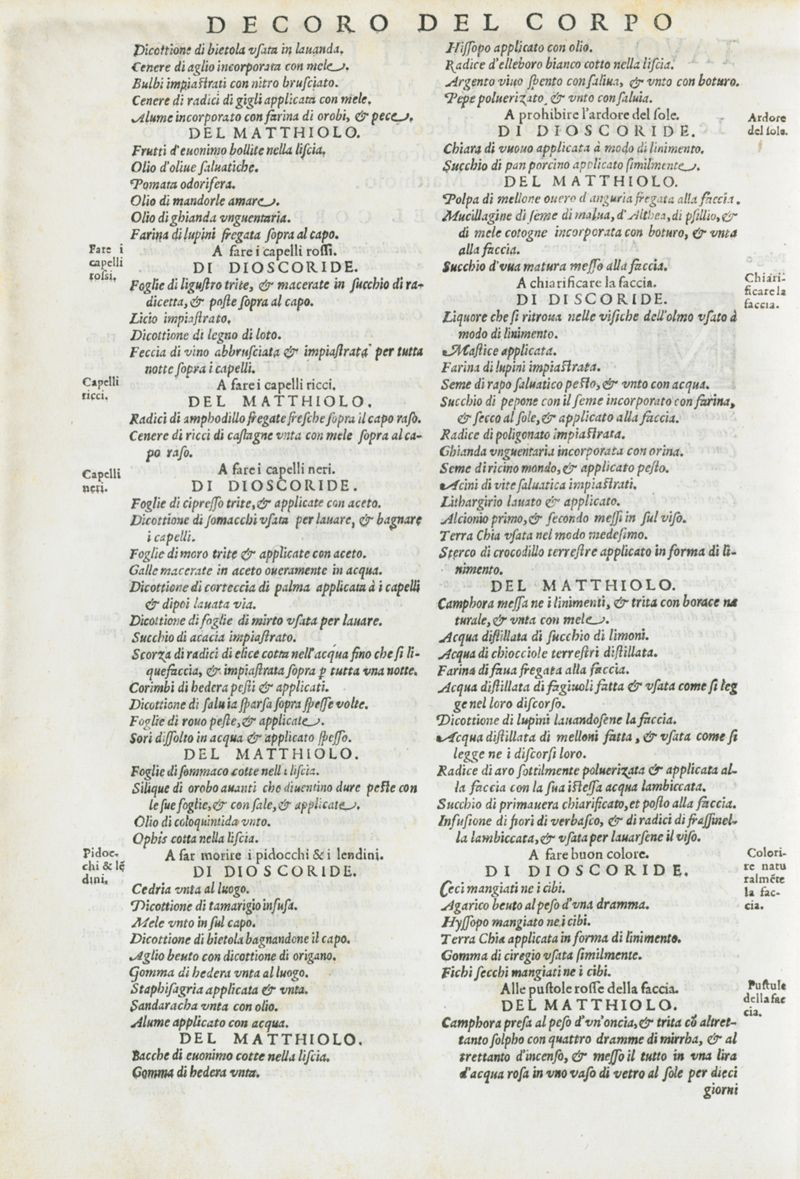 DECORO DEL CORPO
Dicottione di bietola vſata in lauanda.
Cenere di aglio incorporata con mele.
Bulbi impiaſtrati con nitro bruſciato.
Cenere di radici di gigli applicata con mele.
Alume incorporato con farina di orobi, & pece.
DEL MATTHIOLO.
Frutti d'euonimo bollite nella liſcia.
Olio d'oliue ſaluatiche.
Pomata odorifera.
Olio di mandorle amare.
Olio di ghianda vnguentaria.
Farina di lupini fregata ſopra al capo.
Fare i
capelli
roſsi.
A fare i capelli roſſi.
DI DIOSCORIDE.
Foglie di liguſtro trite, & macerate in ſucchio di ra-
dicetta, & poſte ſopra al capo.
Licio impiaſtrato.
Dicottione di legno di loto.
Feccia di vino abbruſciata & impiaſtrata per tutta
notte ſopra i capelli.
Capelli
ricci.
A fare i capelli ricci.
DEL MATTHIOLO.
Radici di amphodillo fregate freſche ſopra il capo raſo.
Cenere di ricci di caſtagne vnta con mele ſopra al ca-
po raſo.
Capelli
neri.
A fare i capelli neri.
DI DIOSCORIDE.
Foglie di cipreſſo trite, & applicate con aceto.
Dicottione di ſomacchi vſata per lauare, & bagnare
i capelli.
Foglie di moro trite & applicate con aceto.
Galle macerate in aceto oueramente in acqua.
Dicottione di corteccia di palma applicata à i capelli
& dipoi lauata via.
Dicottione di foglie di mirto vſata per lauare.
Succhio di acacia impiaſtrato.
Scorza di radici di elice cotta nell'acqua fino che ſi li-
quefaccia, & impiaſtrata ſopra p tutta vna notte.
Corimbi di hedera peſti & applicati.
Dicottione di ſaluia ſparſa ſopra ſpeſſe volte.
Foglie di rouo peſte, & applicate.
Sori diſſolto in acqua & applicato ſpeſſo.
DEL MATTHIOLO.
Foglie di ſommaco cotte nella liſcia.
Silique di orobo auanti che diuentino dure peſte con
le ſue foglie, & con ſale, & applicate.
Olio di coloquintida vnto.
Ophis cotta nella liſcia.
Pidoc,
chi & lē
dini,
A far morire i pidocchi & i lendini.
DI DIOSCORIDE.
Cedria vnta al luogo.
Dicottione di tamarigio infuſa.
Mele vnto in ſul capo.
Dicottione di bietola bagnandone il capo.
Aglio beuto con dicottione di origano.
Gomma di hedera vnta al luogo.
Staphiſagria applicata & vnta.
Sandaracha vnta con olio.
Alume applicato con acqua.
DEL MATTHIOLO.
Bacche di euonimo cotte nella liſcia.
Gomma di hedera vnta.
Hiſſopo applicato con olio.
Radice d'elleboro bianco cotto nella liſcia.
Argento viuo ſpento con ſaliua, & vnto con boturo.
Pepe poluerizato & vnto con ſaluia.
Ardore
del ſole.
A prohibire l'ardore del ſole.
DI DIOSCORIDE.
Chiara di vuouo applicata à modo di linimento.
Succhio di pan porcino applicato ſimilmente.
DEL MATTHIOLO.
Polpa di mellone ouero d'anguria fregata alla faccia.
Mucillagine di ſeme di malua, d'Althea, di pſillio, &
di mele cotogne incorporata con boturo, & vnta
alla faccia.
Succhio d'vua matura meſſo alla faccia.
Chiari-
ficare la
faccia.
A chiarificare la faccia.
DI DISCORIDE.
Liquore che ſi ritroua nelle viſiche dell'olmo vſato à
modo di linimento.
Maſtice applicata.
Farina di lupini impiaſtrata.
Seme di rapo ſaluatico peſto, & vnto con acqua.
Succhio di pepone con il ſeme incorporato con farina,
& ſecco al ſole, & applicato alla faccia.
Radice di poligonato impiaſtrata.
Ghianda vnguentaria incorporata con orina.
Seme di ricino mondo, & applicato peſto.
Acini di vite ſaluatica impiaſtrati.
Lithargirio lauato & applicato.
Alcionio primo, & ſecondo meſſi in ſul viſo.
Terra Chia vſata nel modo medeſimo.
Sterco di crocodillo terreſtre applicato in forma di li-
nimento.
DEL MATTHIOLO.
Camphora meſſa ne i linimenti, & trita con borace na
turale, & vnta con mele.
Acqua diſtillata di ſucchio di limoni.
Acqua di chiocciole terreſtri diſtillata.
Farina di faua fregata alla faccia.
Acqua diſtillata di fagiuoli fatta & vſata come ſi leg
ge nel loro diſcorſo.
Dicottione di lupini lauandoſene la faccia.
Acqua diſtillata di melloni fatta, & vſata come ſi
legge ne i diſcorſi loro.
Radice di aro ſottilmente poluerizata & applicata al-
la faccia con la ſua iſteſſa acqua lambiccata.
Succhio di primauera chiarificato, et poſto alla faccia.
Infuſione di fiori di verbaſco, & di radici di fraſſinel-
la lambiccata, & vſata per lauarſene il viſo.
Colori-
re natu
ralmēte
la fac-
cia.
A fare buon colore.
DI DIOSCORIDE.
Ceci mangiati ne i cibi.
Agarico beuto al peſo d'vna dramma.
Hyſſopo mangiato ne i cibi.
Terra Chia applicata in forma di linimento.
Gomma di ciregio vſata ſimilmente.
Fichi ſecchi mangiati ne i cibi.
Puſtule
della fac
cia.
Alle puſtole roſſe della faccia.
DEL MATTHIOLO.
Camphora preſa al peſo d'vn'oncia, & trita cō altret-
tanto ſolpho con quattro dramme di mirrha, & al
trettanto d'incenſo, & meſſo il tutto in vna lira
d'acqua roſa in vno vaſo di vetro al ſole per dieci
giorni